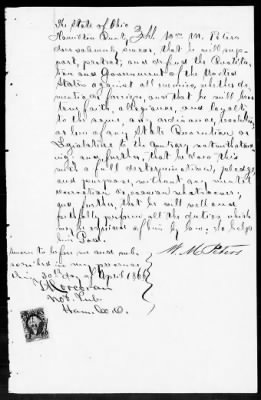 The State of Ohio
Hamilton County Wm. M. Peters
being duly sworn, that he will sup-
port, protect, and defend the Constitu-
tion and Government of the United
States against all enemies, whether do-
mestic or foreign, and that he will bear
true faith, allegiance, and loyalty
to the same, any ordinance, resolution
or law of any State Convention or
Legislature to the contrary notwithstand-
ing; and further, that he does this
with a full determination, pledge,
and purpose, without any mental
reservation or evasion whatsoever;
and further, that he will well and
faithfully perform all the duties which
may be required of him by law. So help
him God.
W. M. Peters
Sworn to before me and sub-
scribed in my presence
this 30th day of April 1866
Corcoran
Not. Pub.
Ham. Co. O.